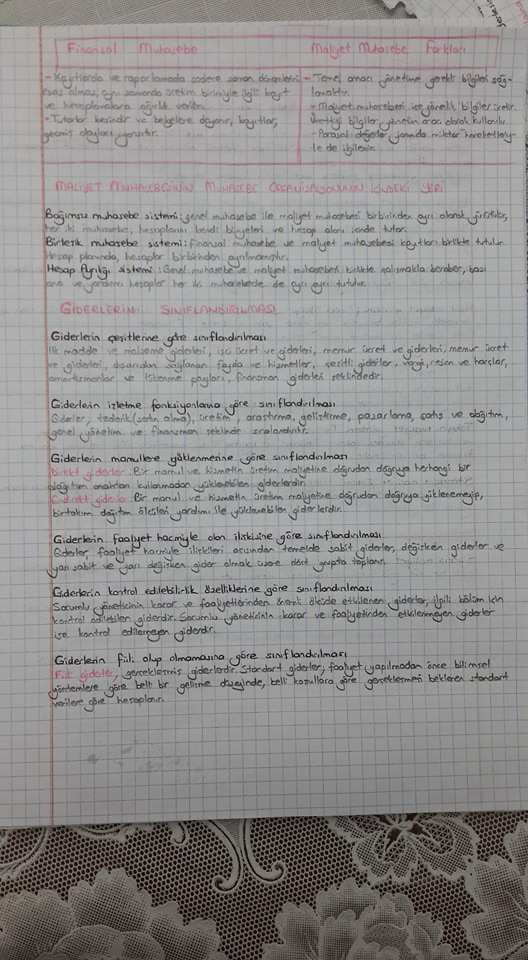 Finansal Muhasebe
Maliyet Muhasebe Farkları
- Kayıtlarda ve raporlamada sadece
esas alması, aynı zamanda üretim birimiyle ilgili kayıt
ve hesaplamalara ağırlık verilir.
- Tutarlar kesindir ve belgelere dayanır, kayıtlar,
geçmiş olayları yansıtır.
- Temel amacı yönetime gerekli bilgileri sağ-
lamaktır.
- Maliyet muhasebesi içe yönelik bilgiler üretir.
Ürettiği bilgiler, yönetim aracı olarak kullanılır.
- Parasal değerler yanında miktar hareketleriy-
le de ilgilenir.
MALİYET MUHASEBESİNİN MUHASEBE ORGANİZASYONUNUN İÇİNDEKİ YERİ
Bağımsız muhasebe sistemi: genel muhasebe ile maliyet muhasebesi birbirinden ayrı olarak yürütülür,
her iki muhasebe, hesaplarını kendi bilgileri ve hesap alanı içinde tutar.
Birlesik muhasebe sistemi: finansal muhasebe ve maliyet muhasebesi kayıtları birlikte tutulur.
Hesap planında, hesaplar birbirinden ayrılmamıştır.
Hesap Ayrılığı sistemi: Genel muhasebe ve maliyet muhasebesi birlikte çalışmakla beraber, bazı
ana ve yardımcı hesaplar her iki muhasebede de ayrı ayrı tutulur.
GİDERLERİN SINIFLANDIRILMASI
Giderlerin çeşitlerine göre sınıflandırılması
İlk madde ve malzeme giderleri, işçi ücret ve giderleri, memur ücret ve giderleri, memur ücret
ve giderleri, dışarıdan sağlanan fayda ve hizmetler, çeşitli giderler, vergi, resim ve harçlar,
amortismanlar ve tükenme payları, finansman giderleri şeklindedir.
Giderlerin işletme fonksiyonlarına göre sınıflandırılması
Giderler, tedarik (satın alma), üretim, araştırma, geliştirme, pazarlama, satış ve dağıtım,
genel yönetim ve finansman şeklinde sıralandırılır.
Giderlerin mamullere yüklenmerine göre sınıflandırılması
Direkt giderler: Bir mamul ve hizmetin üretim maliyetine doğrudan doğruya herhangi bir
dağıtım anahtarı kullanmadan yüklenebilen giderlerdir.
Endirekt giderler: Bir mamul ve hizmetin üretim maliyetine doğrudan doğruya yüklenemeyip,
birtakım dağıtım ölçüleri yardımı ile yüklenebilen giderlerdir.
Giderlerin faaliyet hacmiyle olan ilişkisine göre sınıflandırılması
Giderler, faaliyet hacmiyle ilişkileri açısından temelde sabit giderler, değişken giderler ve
yarı sabit ve yarı değişken gider olmak üzere dört grupta toplanır.
Giderlerin kontrol edilebilirlik özelliklerine göre sınıflandırılması
Sorumlu yöneticinin karar ve faaliyetlerinden önemli ölçüde etkilenen giderler, ilgili bölüm için
kontrol edilebilen giderdir. Sorumlu yöneticinin karar ve faaliyetinden etkilenmeyen giderler
ise kontrol edilemeyen giderdir.
Giderlerin fiili olup olmamasına göre sınıflandırılması
Fiili giderler, gerçekleşmiş giderlerdir. Standart giderler, faaliyet yapılmadan önce bilimsel
yöntemlere göre belli bir gelişme düzeyinde, belli koşullara göre gerçekleşmesi beklenen standart
verilere göre hesaplanır.